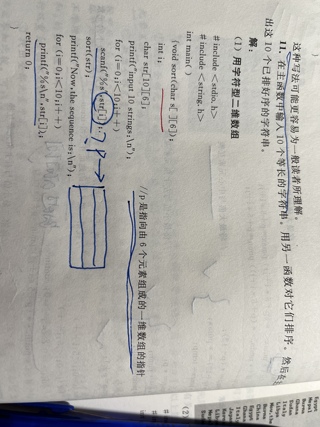 这种写法可能更容易为一般读者所理解。
11. 在主函数中输入10个等长的字符串。用另一函数对它们排序。然后在
出这10个已排好序的字符串。
解:
(1) 用字符型二维数组
# include <stdio.h>
# include <string.h>
int main( )
{void sort(char s[ ][6]);
int i;
char str[10][6]; //p是指向由6个元素组成的一维数组的指针
printf("input 10 strings:\n");
for (i=0;i<10;i++)
scanf("%s",str[i]); ? P →
sort(str);
printf("Now,the sequence is:\n");
for (i=0;i<10;i++)
printf("%s\n",str[i]);
return 0;